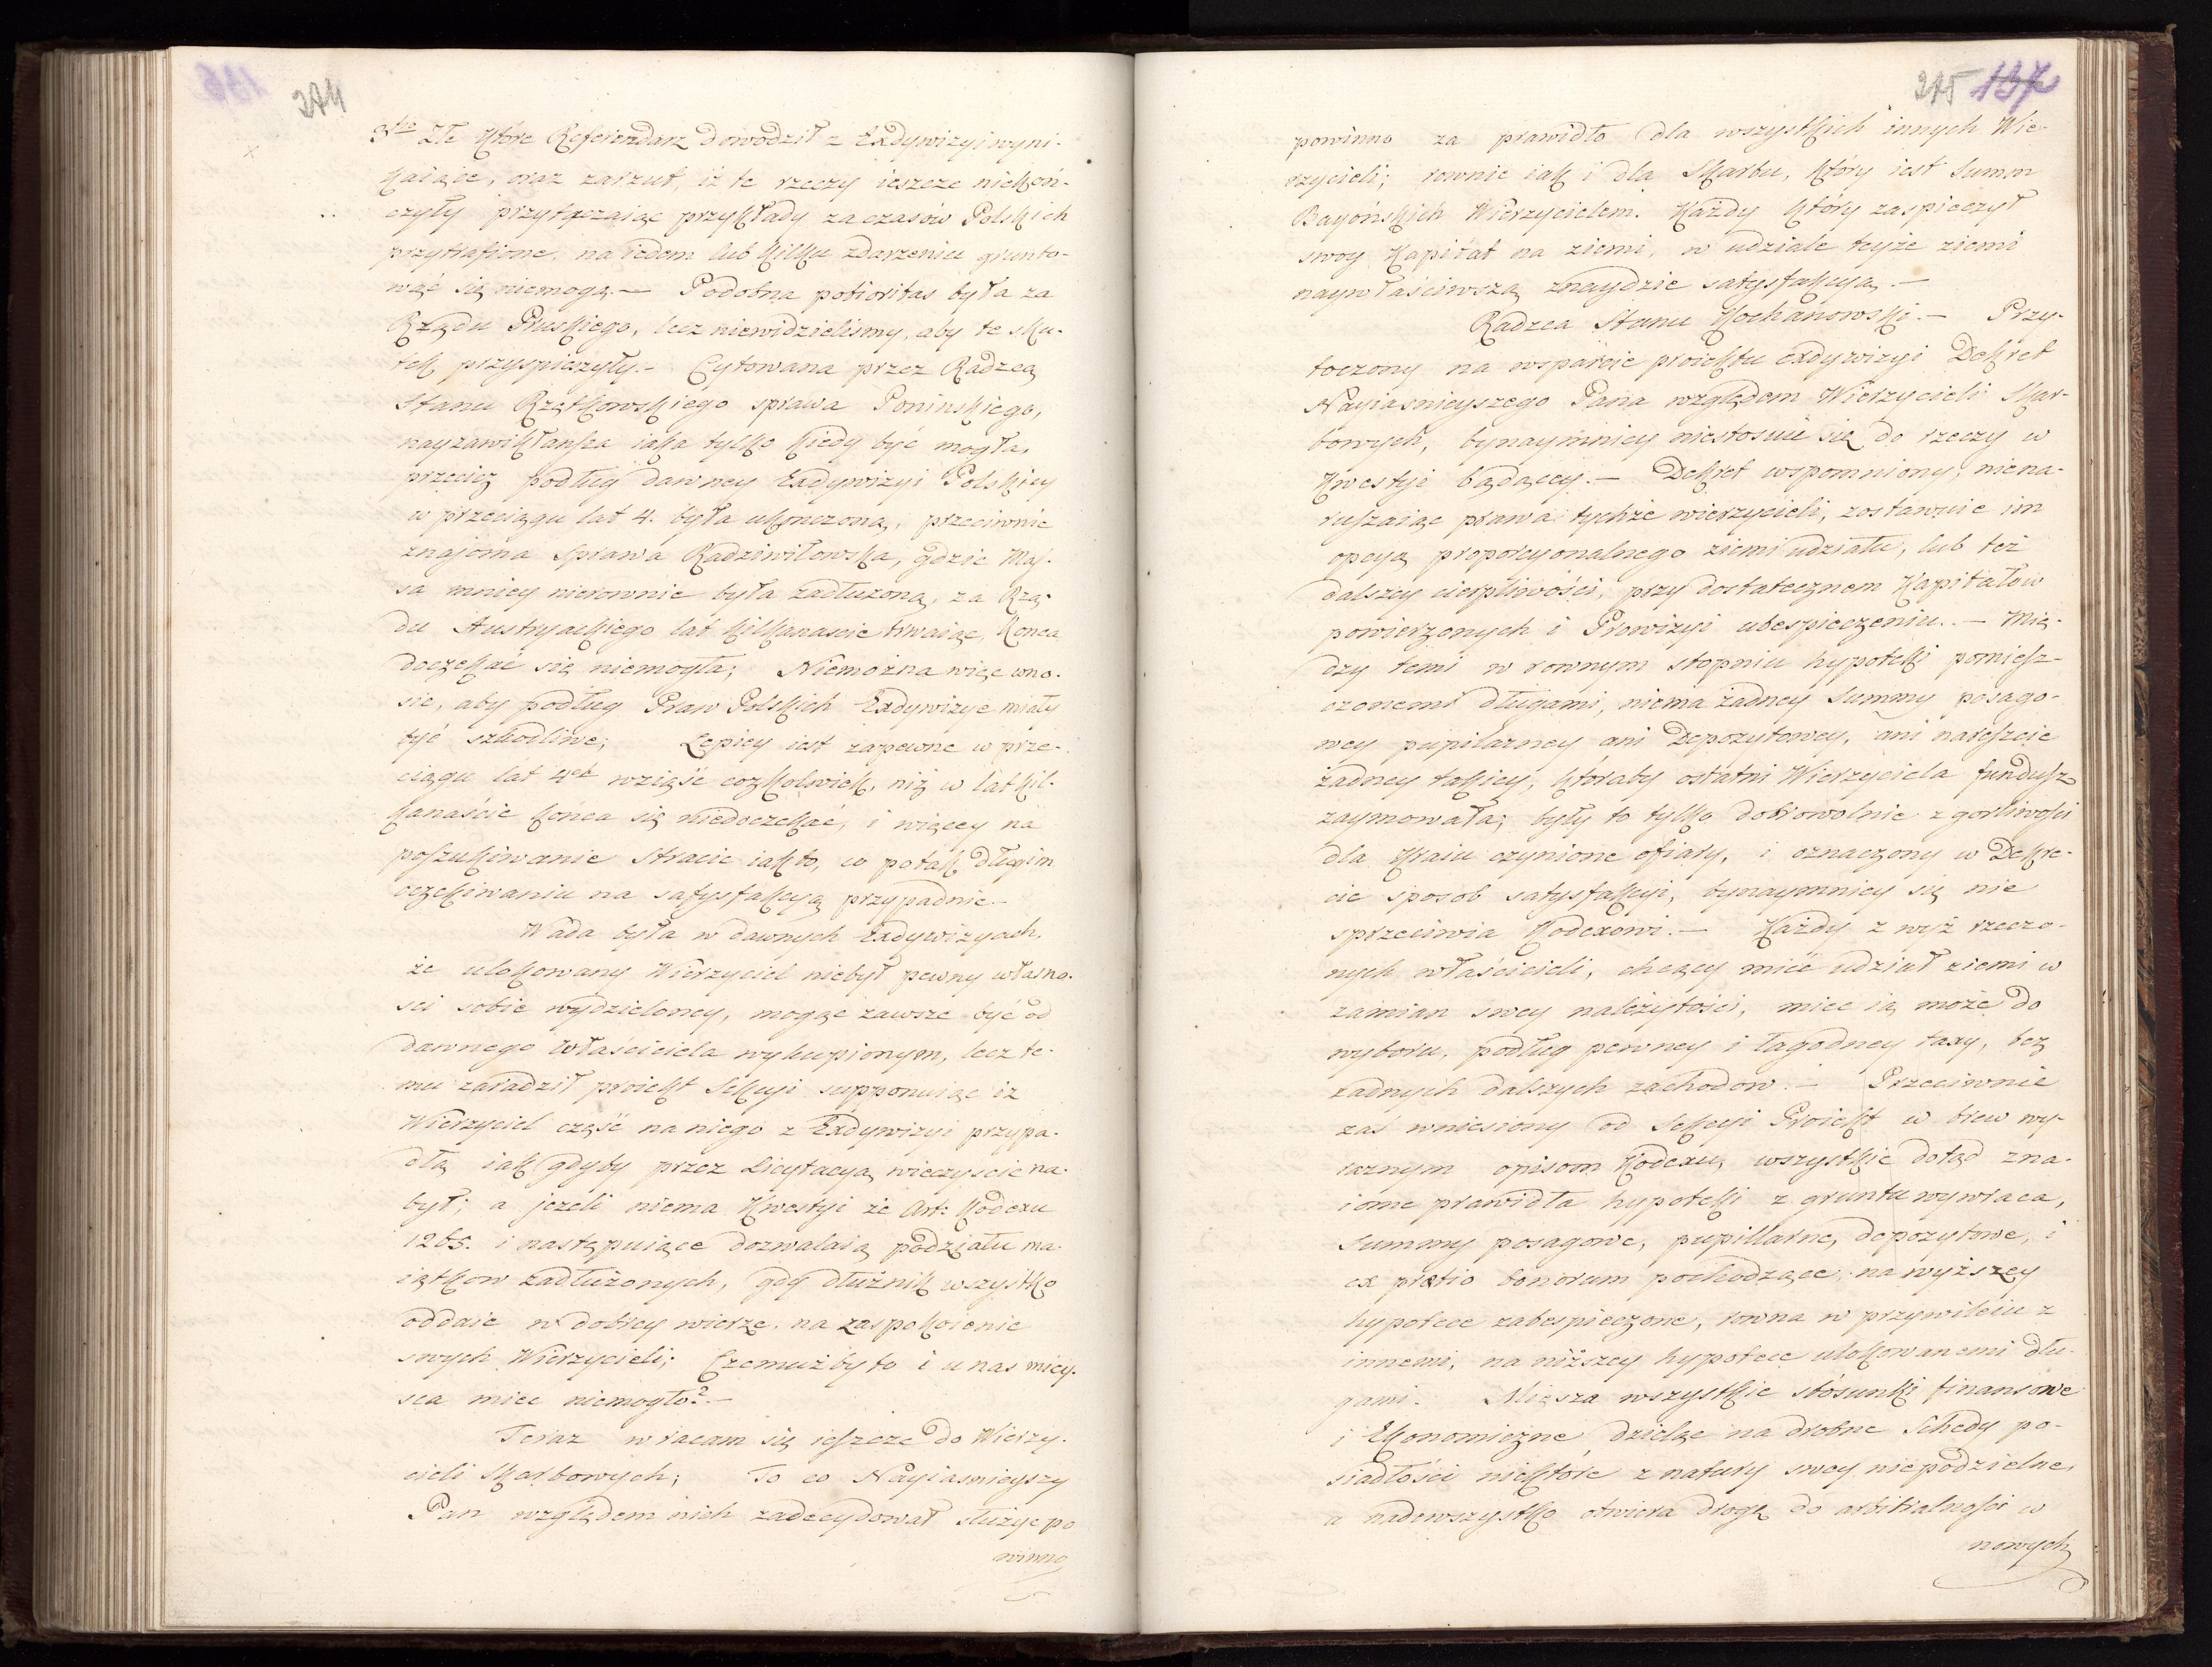 274
3tio Złe które Referendarz dowodził z Exdywizyi wyni-
kaiące, oraz zarzut, iż te rzeczy ieszcze niekoń-
czyły przytaczaiąc przykłady za czasów Polskich
przytrafione, na iedem lub kilku zdarzeniu grunto-
wać się niemogą. — Podobna potioritas była za
Rządu Pruskiego, lecz niewidzieliśmy, aby te sku-
tek przyspieszyły. — Cytowana przez Radzcę
Stanu Rzątkowskiego sprawa Ponińskiego,
nayzawikłańsza iaka tylko kiedy być mogła,
przecież podług dawney Exdywizyi Polskiey
w przeciągu lat 4. była ukończoną, przeciwnie
znajoma sprawa Radziwiłowska, gdzie Mas-
sa mniey nierownie była zadłużoną, za Rzą-
du Austryackiego lat kilkanascie trwaiąc, konca
doczekać się niemogła; Niemożna więc wno-
sic, aby podług Praw Polskich Exdywizye miały
być szkodliwe; Lepiey iest zapewne w prze-
ciągu lat 4ch wziąść cożkolwiek, niż w lat kil-
kanaście końca się niedoczekać, i więcey na
poszukiwanie stracic iak to, co po tak długim
oczekiwaniu na satysfakcyą przypadnie. —
Wada była w dawnych Exdywizyach,
że ulokowany Wierzyciel niebył pewny własno-
sci sobie wydzieloney, mogąc zawsze być od
dawnego Właściciela wykupionym, lecz te-
mu zaradził proiekt Sekcyi supponuiąc iż
Wierzyciel część na niego z Exdywizyi przypa-
dłą iak gdyby przez Licytacyą wieczyscie na-
był; a jezeli niema Kwestyi że Art: Kodexu
1265. i następuiące dozwalaią podziału ma-
iątkow zadłużonych, gdy dłużnik wszystko
oddaie w dobrey wierze na zaspokoienie
swych Wierzycieli; Czemużby to i u nas miey-
sca miec niemogło? —
Teraz wracam się ieszcze do Wierzy-
cieli Skarbowych; To co Nayiasnieyszy
Pan względem nich zadecydował służyc po
winno
275 137
powinno za prawidło dla wszystkich innych Wie-
rzycieli; rownie iak i dla Skarbu, który iest Summ
Bayońskich Wierzycielem. Każdy który zaspieczył
swoy Kapitał na ziemi, w udziale teyże ziemi
naywłaściwszą znaydzie satysfakcyą. —
Radzca Stanu Kochanowski. — Przy-
toczony na wsparcie proiektu exdywizyi Dekret
Nayiasnieyszego Pana względem Wierzycieli Skar-
bowych, bynaymniey niestosuie się do rzeczy w
Kwestyi będącey. — Dekret wspomniony, niena-
ruszaiąc prawa tychże wierzycieli, zostawuie im
opcyą proporcyonalnego ziemi udziału, lub też
dalszey cierpliwości, przy dostatecznem Kapitałow
powierzonych i Prowizyi ubespieczeniu. — Mię-
dzy temi w rownym stopniu hypoteki pomiesz-
czonemi długami, niema żadney Summy posago-
wey pupilarney ani Depozytowey, ani nareszcie
żadney takiey, któraby ostatni Wierzyciela fundusz
zaymowała; były to tylko dobrowolnie z gorliwości
dla Kraiu czynione ofiary, i oznaczony w Dekre-
cie sposob satysfakcyi, bynaymniey się nie
sprzeciwia Kodexowi. — Każdy z wyż rzeczo-
nych właścicieli, chcący mieć udział ziemi w
zamian swey należytości, miec ią może do
wyboru, podług pewney i łagodney taxy, bez
żadnych dalszych zachodow. — Przeciwnie
zaś wniesiony od Sekcyi Proiekt w brew wy-
raznym opisom Kodexu, wszystkie dotąd zna-
iome prawidła hypoteki z gruntu wywraca,
summy posagowe, pupillarne, depozytowe, i
ex pretio bonorum pochodzące, na wyższey
hypotece zabespieczone, rowna w przywileiu z
innemi, na niższey hypotece ulokowanemi dłu-
gami. Miesza wszystkie stósunki finansowe
i Ekonomiczne, dzieląc na drobne Schedy po-
siadłości niektóre z natury swey niepodzielne,
a nadewszystko otwiera drogę do arbitralności w
nowych